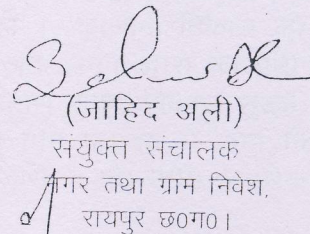 (जाहिद अली)
संयुक्त संचालक
नगर तथा ग्राम निवेश,
रायपुर छ०ग०।